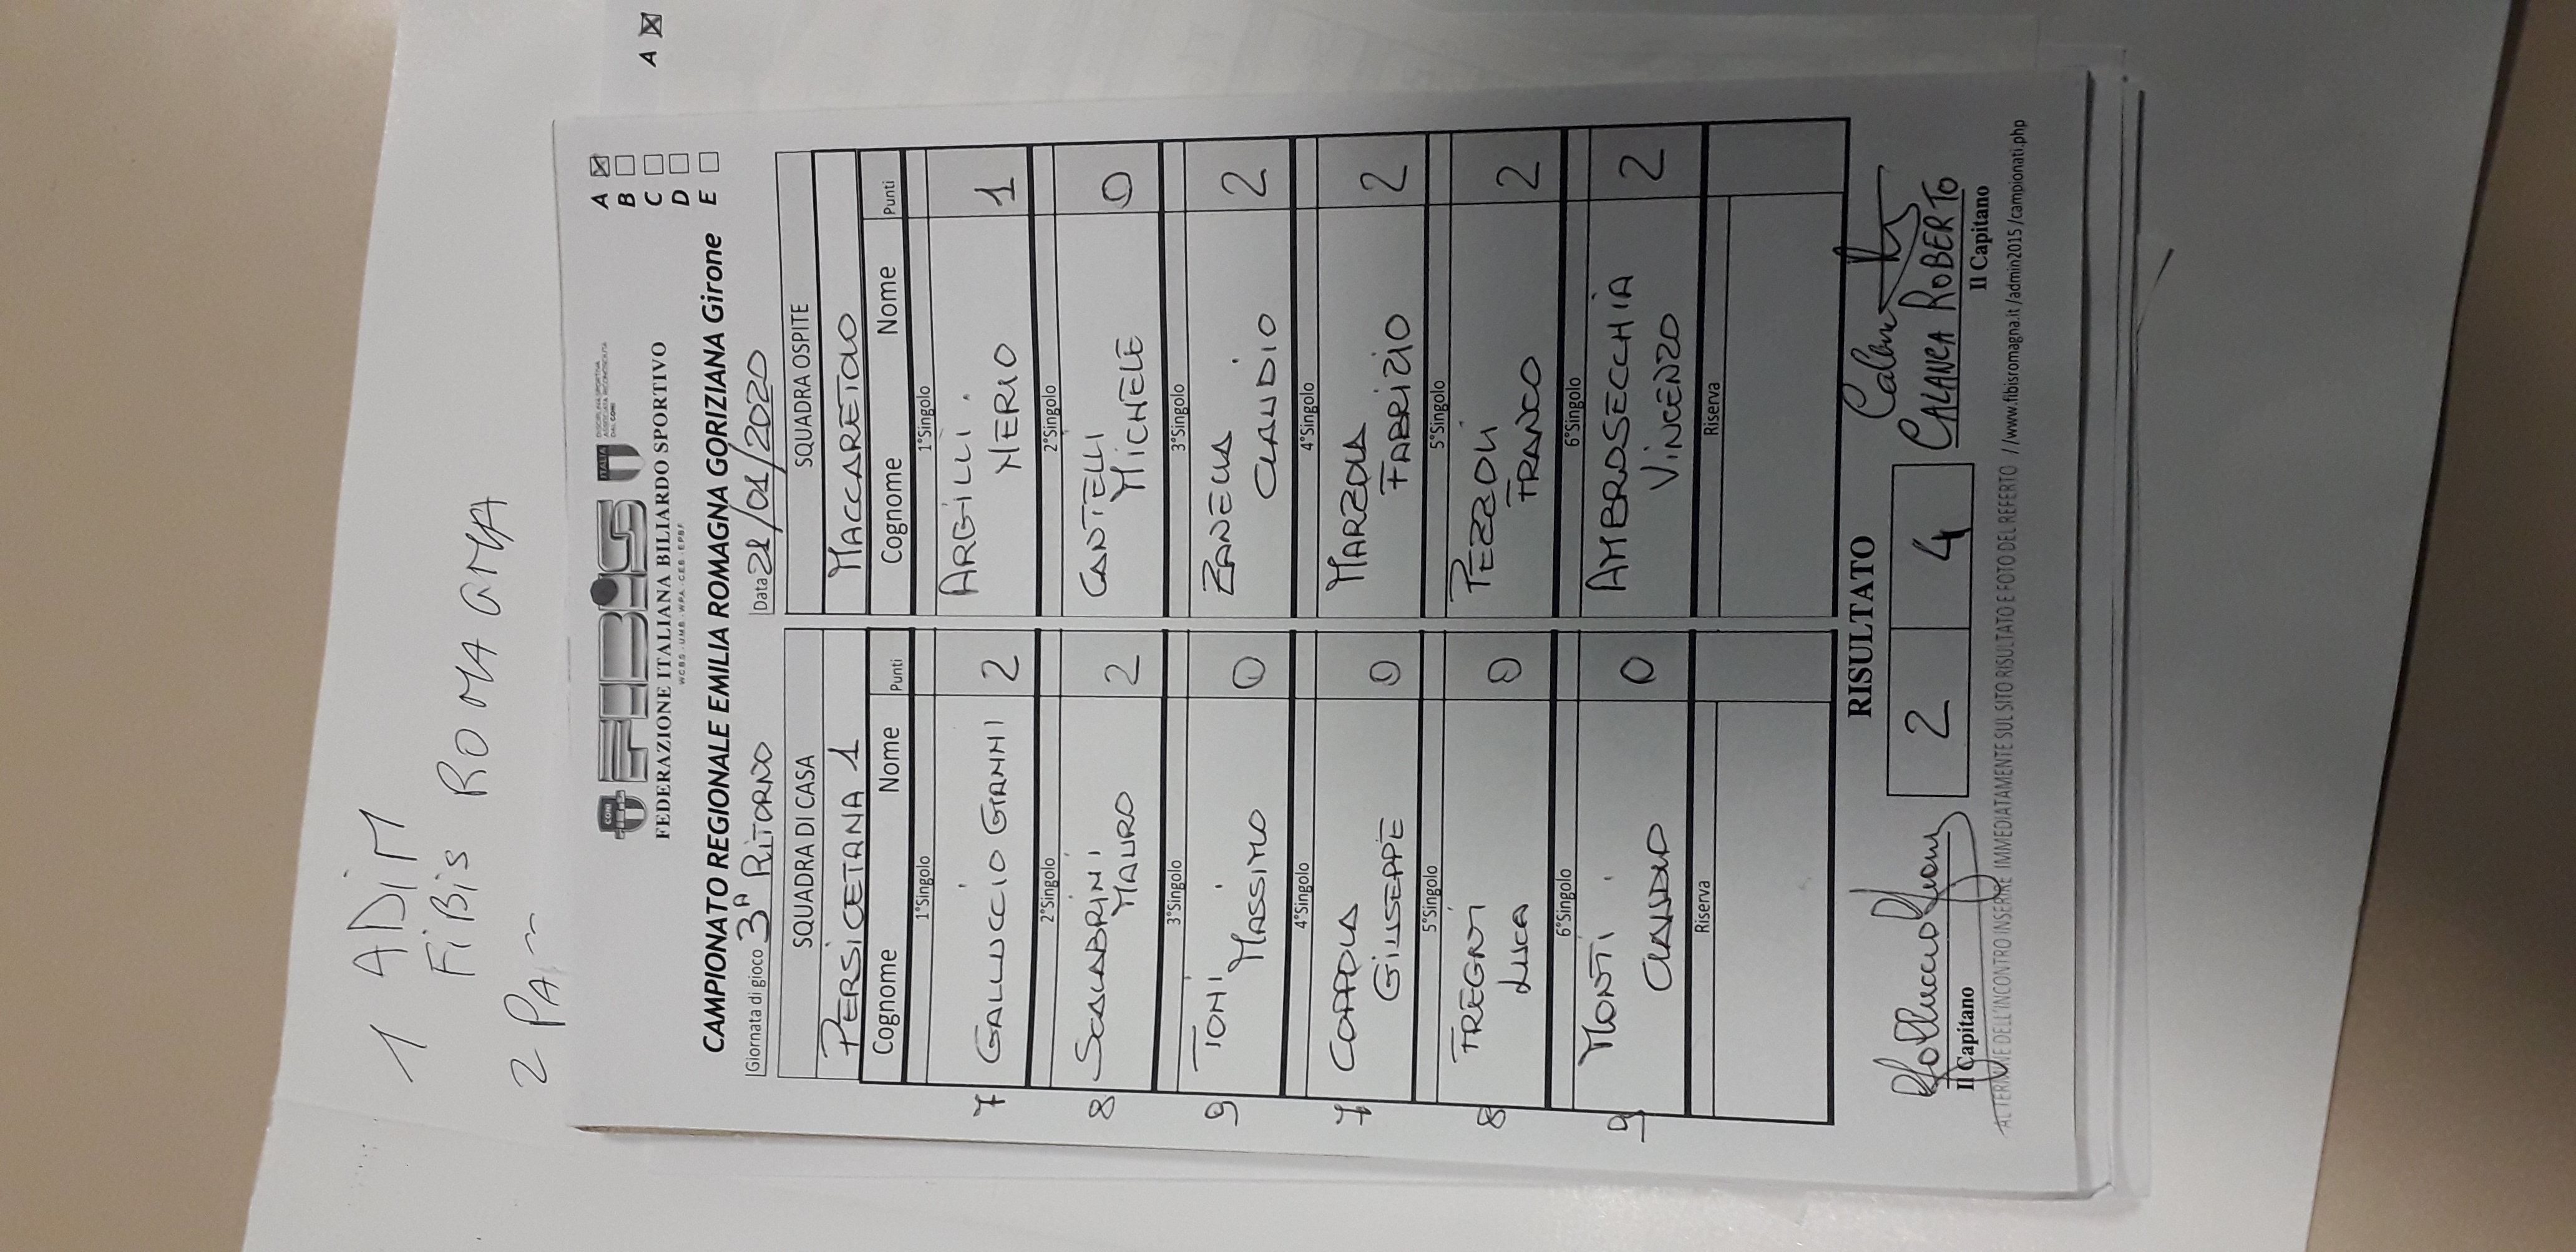 1 ADIM
FiBis ROMAGNA
2 PA
A ☒
CONI FIBiS ITALIA
DISCIPLINA SPORTIVA ASSOCIATA RICONOSCIUTA DAL CONI
FEDERAZIONE ITALIANA BILIARDO SPORTIVO
W.C.B.S - U.M.B - W.P.A - C.E.B - E.P.B.F
A ☒
B ☐
C ☐
D ☐
E ☐
CAMPIONATO REGIONALE EMILIA ROMAGNA GORIZIANA Girone
Giornata di gioco 3ª RITORNO Data 21/01/2020
SQUADRA DI CASA SQUADRA OSPITE
PERSICETANA 1 MACCARETOLO
Cognome Nome Punti Cognome Nome Punti
1°Singolo 1°Singolo
7 GALLUCCIO GIANNI 2 ARGILLI NERIO 1
2°Singolo 2°Singolo
8 SCALABRINI MAURO 2 CANTELLI MICHELE 0
3°Singolo 3°Singolo
9 TONI MASSIMO 0 ZANELLA CLAUDIO 2
4°Singolo 4°Singolo
7 COPPOLA GIUSEPPE 0 MARZOLA FABRIZIO 2
5°Singolo 5°Singolo
8 FREGNI LUCA 0 PEZZOLI FRANCO 2
6°Singolo 6°Singolo
9 MONTI CLAUDIO 0 AMBROSECCHIA VINCENZO 2
Riserva Riserva
RISULTATO
2 4
CALANCA ROBERTO
Il Capitano Il Capitano
AL TERMINE DELL'INCONTRO INSERIRE IMMEDIATAMENTE SUL SITO RISULTATO E FOTO DEL REFERTO //www.fibisromagna.it/admin2015/campionati.php